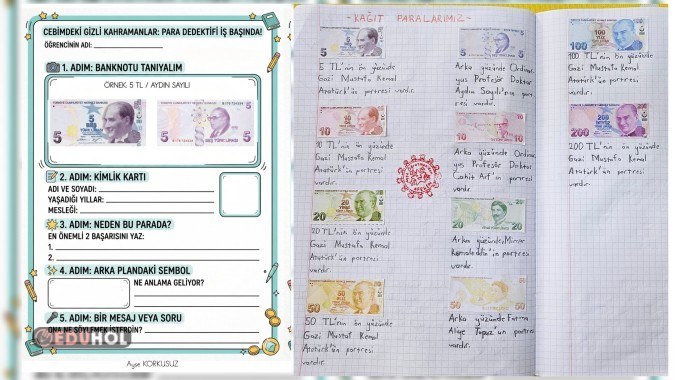 CEBİMDEKİ GİZLİ KAHRAMANLAR: PARA DEDEKTİFİ İŞ BAŞINDA!
ÖĞRENCİNİN ADI:
1. ADIM: BANKNOTU TANIYALIM
ÖRNEK: 5 TL / AYDIN SAYILI
5
5
BEŞ
TÜRK LİRASI
5
BEŞ TÜRK LİRASI
2. ADIM: KİMLİK KARTI
ADI VE SOYADI:
YAŞADIĞI YILLAR:
MESLEĞİ:
3. ADIM: NEDEN BU PARADA?
EN ÖNEMLİ 2 BAŞARISINI YAZ:
1.
2.
4. ADIM: ARKA PLANDAKİ SEMBOL
NE ANLAMA GELİYOR?
5. ADIM: BİR MESAJ VEYA SORU
ONA NE SÖYLEMEK İSTERDİN?
EDUHOL
Ayşe KORKUSUZ
-KAĞIT PARALARIMIZ-
5
5
5 TL'nin ön yüzünde
Gazi Mustafa Kemal
Atatürk'ün portresi
vardır.
Arka yüzünde Ordinar
yus Profesör Doktor
Aydın Sayılı'nın port
resi vardır.
10
10
10 TL'nin ön yüzünde
Gazi Mustafa Kemal
Atatürk'ün portresi
vardır.
Arka yüzünde Ordinar
yus Profesör Doktor
Cahit Arf'ın portresi
vardır.
20
20
20 TL'nin ön yüzünde
Gazi Mustafa Kemal
Atatürk'ün portresi
vardır.
Arka yüzünde Mimar
Kemaleddin'in portresi
vardır.
50
50
50 TL'nin ön yüzünde
Gazi Mustafa Kemal
Atatürk'ün portresi
vardır.
Arka yüzünde Fatma
Aliye Topuz'un portre
si vardır.
100
100 TL'nin ön yüzünde
Gazi Mustafa Kemal
Atatürk'ün portresi
vardır.
200
200 TL'nin ön yüzünde
Gazi Mustafa Kemal
Atatürk'ün portresi
vardır.